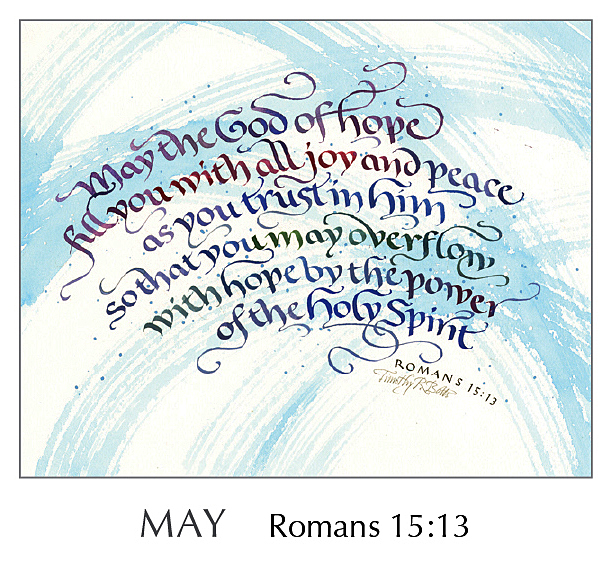 May the God of hope
fill you with all joy and peace
as you trust in him
so that you may overflow
with hope by the power
of the holy Spirit
ROMANS 15:13
Timothy R. Botts
MAY Romans 15:13